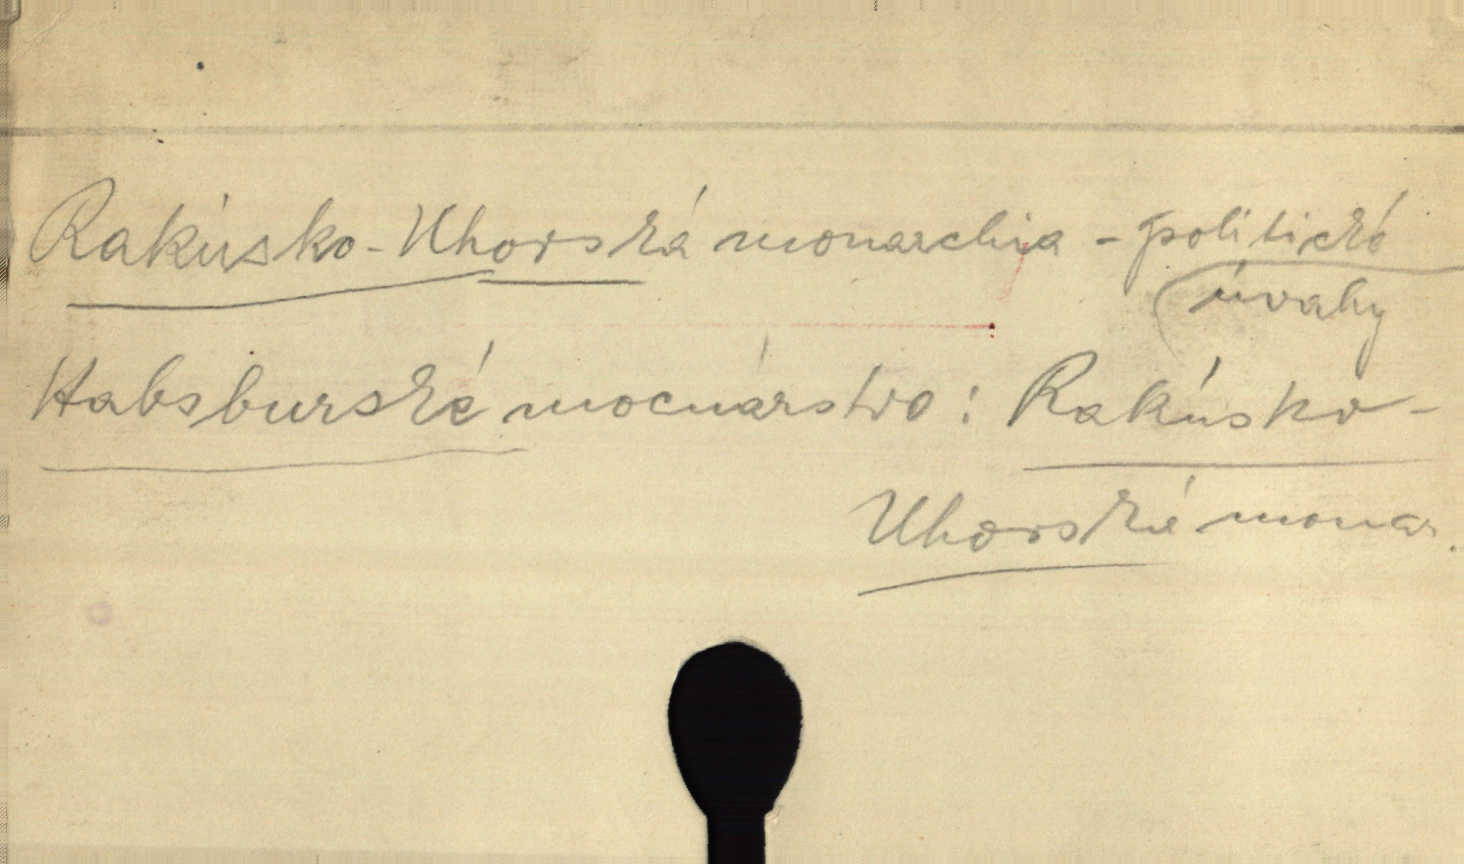 Rakúsko-Uhorská monarchia - politické
úvahy
Habsburské mocnárstvo: Rakúsko-
Uhorská monar.